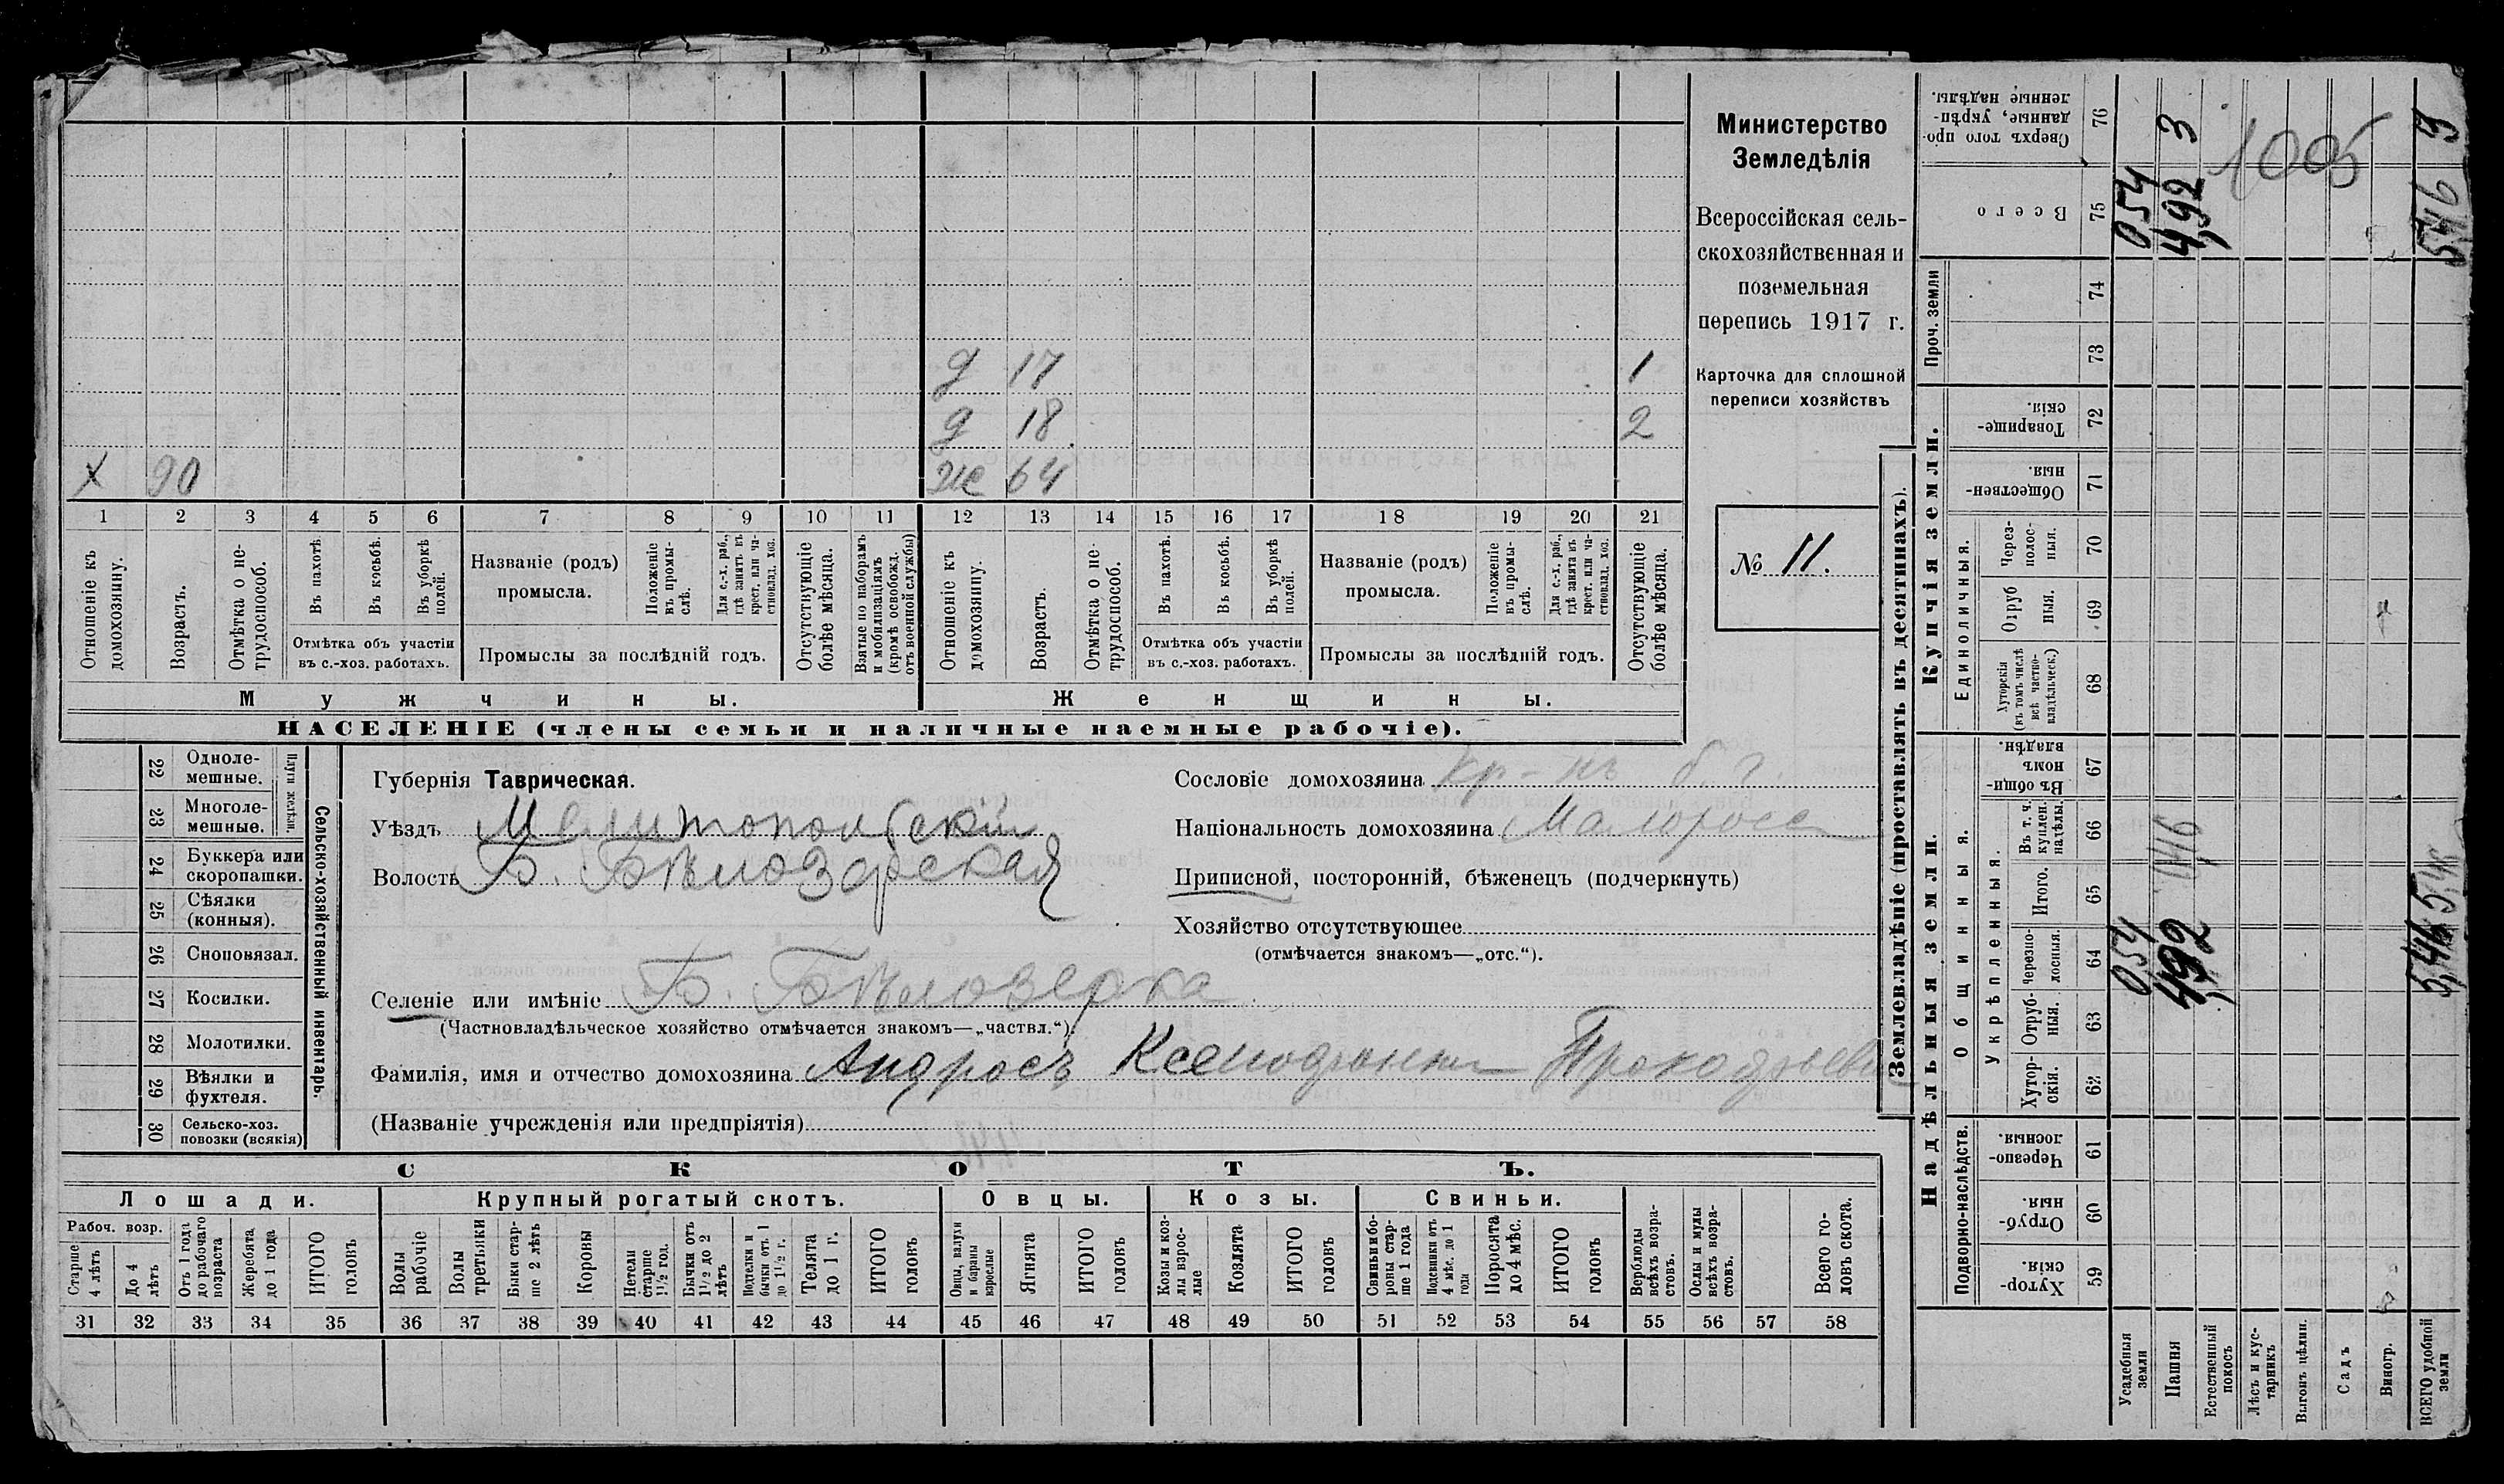 д 17 1
д 18 2
х 90 же 64
1 2 3 4 5 6 7 8 9 10 11 12 13 14 15 16 17 18 19 20 21
Отношеніе къ домохозяину.
Возрастъ.
Отмѣтка о не-трудоспособ.
Въ пахотѣ.
Въ косьбѣ.
Въ уборкѣ полей.
Отмѣтка объ участіи
въ с.-хоз. работахъ.
Названіе (родъ)
промысла.
Положеніе въ промы-слѣ.
Для с.-х. раб., гдѣ занятъ въ крест. или ча-ствовлад. хоз.
Промыслы за послѣдній годъ.
Отсутствующіе болѣе мѣсяца.
Взятые по наборамъ и мобилизаціямъ (кромѣ освобожд. отъ военной службы)
Отношеніе къ домохозяину.
Возрастъ.
Отмѣтка о не-трудоспособ.
Въ пахотѣ.
Въ косьбѣ.
Въ уборкѣ полей.
Отмѣтка объ участіи
въ с.-хоз. работахъ.
Названіе (родъ)
промысла.
Положеніе въ промы-слѣ.
Для с.-х. раб., гдѣ занята въ крест. или ча-ствовлад. хоз.
Промыслы за послѣдній годъ.
Отсутствующіе болѣе мѣсяца.
Мужчины.
Женщины.
НАСЕЛЕНІЕ (члены семьи и наличные наемные рабочіе).
Министерство
Земледѣлія
Всероссійская сель-
скохозяйственная и
поземельная
перепись 1917 г.
Карточка для сплошной
переписи хозяйствъ
№ 11.
22 Одноле-мешные.
23 Многоле-мешные.
Плуги желѣзн.
24 Буккера или скоропашки.
25 Сѣялки (конныя).
26 Сноповязал.
27 Косилки.
28 Молотилки.
29 Вѣялки и фухтеля.
30 Сельско-хоз. повозки (всякія)
Сельско-хозяйственный инвентарь.
Губернія Таврическая.
Уѣздъ Мелитопольскій
Волость Б. Бѣлозерская
Селеніе или имѣніе Б. Бѣлозерка
(Частновладѣльческое хозяйство отмѣчается знакомъ—„частвл.“).
Фамилія, имя и отчество домохозяина Андросъ Ксенофонтъ Прокофьевъ
(Названіе учрежденія или предпріятія)
Сословіе домохозяина кр-нъ б. г.
Національность домохозяина Малоросс
Приписной, посторонній, бѣженецъ (подчеркнуть)
Хозяйство отсутствующее
(отмѣчается знакомъ—„отс.“).
СКОТЪ.
Лошади.
Крупный рогатый скотъ.
Овцы.
Козы.
Свиньи.
Рабоч. возр.
Старше 4 лѣтъ
До 4 лѣтъ
Отъ 1 года до рабочаго возраста
Жеребята до 1 года
ИТОГО головъ
Волы рабочіе
Волы третьяки
Быки стар-ше 2 лѣтъ
Коровы
Нетели старше 1 1/2 год.
Бычки отъ 1 1/2 до 2 лѣтъ
Подтелки и бычки отъ 1 до 1 1/2 г.
Телята до 1 г.
ИТОГО головъ
Овцы, валухи и бараны взрослые
Ягнята
ИТОГО головъ
Козы и коз-лы взрос-лые
Козлята
ИТОГО головъ
Свиньи бо-роны стар-ше 1 года
Подсвинки отъ 4 мѣс. до 1 года
Поросята до 4 мѣс.
ИТОГО головъ
Верблюды всѣхъ возра-стовъ.
Ослы и мулы всѣхъ возра-стовъ.
Всего го-ловъ скота.
31 32 33 34 35 36 37 38 39 40 41 42 43 44 45 46 47 48 49 50 51 52 53 54 55 56 57 58
Землевладѣніе (проставлять въ десятинахъ).
Надѣльныя земли.
Купчія земли.
Проч. земли
Подворно-наслѣдств.
Общинныя.
Укрѣпленныя.
Единоличныя.
Хутор-скія. 59
Отруб-ныя. 60
Черезпо-лосныя. 61
Хутор-скія. 62
Отруб-ныя. 63
Черезпо-лосныя. 64
Итого. 65
Въ т. ч. куплен. надѣлы. 66
Въ общи-номъ владѣн. 67
Хуторскія (въ томъ числѣ всѣ частно-владѣльческ.) 68
Отруб ныя. 69
Через-полос-ныя. 70
Обществен-ныя. 71
Товарище-скія. 72
73
74
Всего 75
Сверхъ того про-данные, укрѣп-ленные надѣлы. 76
Усадебныя земли 054 054
Пашня 4,92 4,92 3
Естественный покосъ
Лѣсъ и кус-тарникъ
Выгонъ цѣлин.
Садъ
Виногр.
ВСЕГО удобной земли 5,46 546 3
1005